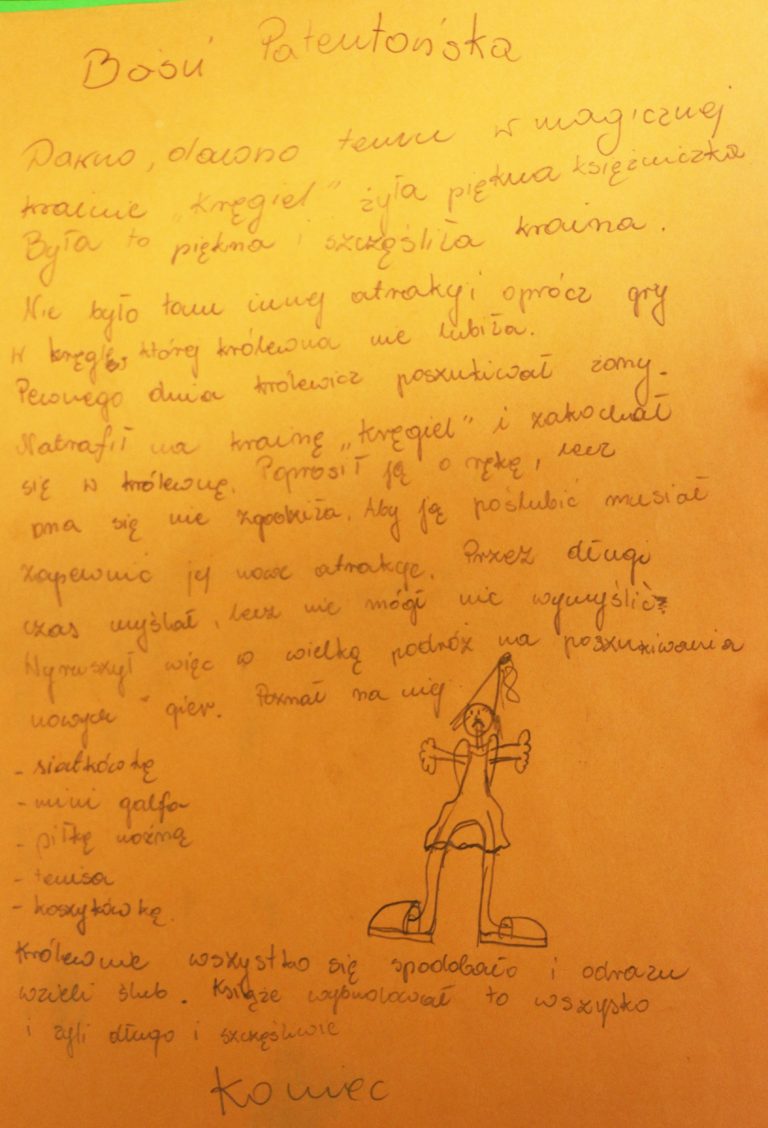 Baśń Patentońska
Dawno, dawno temu w magicznej
krainie „Kręgiel" żyła piękna księżniczka
Była to piękna i szczęśliła kraina.
Nie było tam innej atrakcji oprócz gry
w kręgle, której królewna nie lubiła.
Pewnego dnia królewicz poszukiwał żony.
Natrafił na krainę „Kręgiel" i zakochał
się w królewnę. Poprosił ją o rękę, lecz
ona się nie zgodziła. Aby ją poślubić musiał
zapewnić jej nowe atrakcje. Przez długi
czas myślał, lecz nie mógł nic wymyślić.
Wyruszył więc w wielką podróż na poszukiwania
nowych gier. Poznał na niej
- siatkówkę
- mini golfa
- piłkę nożną
- tenisa
- koszykówkę.
Królewnie wszystko się spodobało i odrazu
wzieli ślub. Książe wybudował to wszysko
i żyli długo i szczęśliwie
Koniec